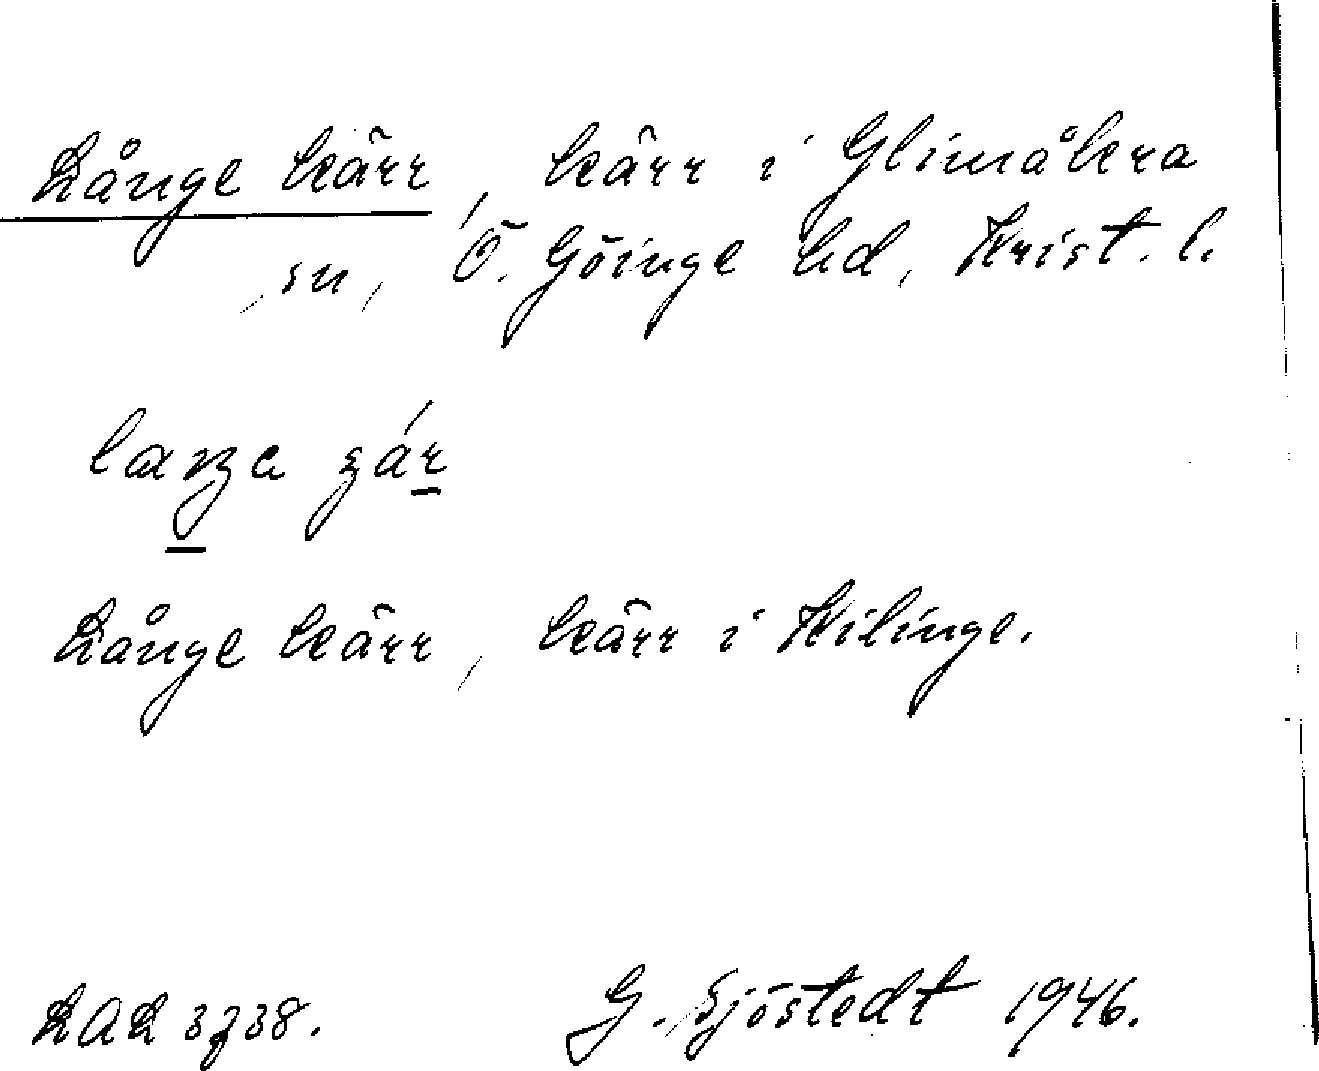 Långe kärr, kärr i Glimåkra
sn, Ö. Göinge hd, Krist. l.
Långe kärr, kärr i Kilinge.
LAL 3738. G. Sjöstedt 1946.